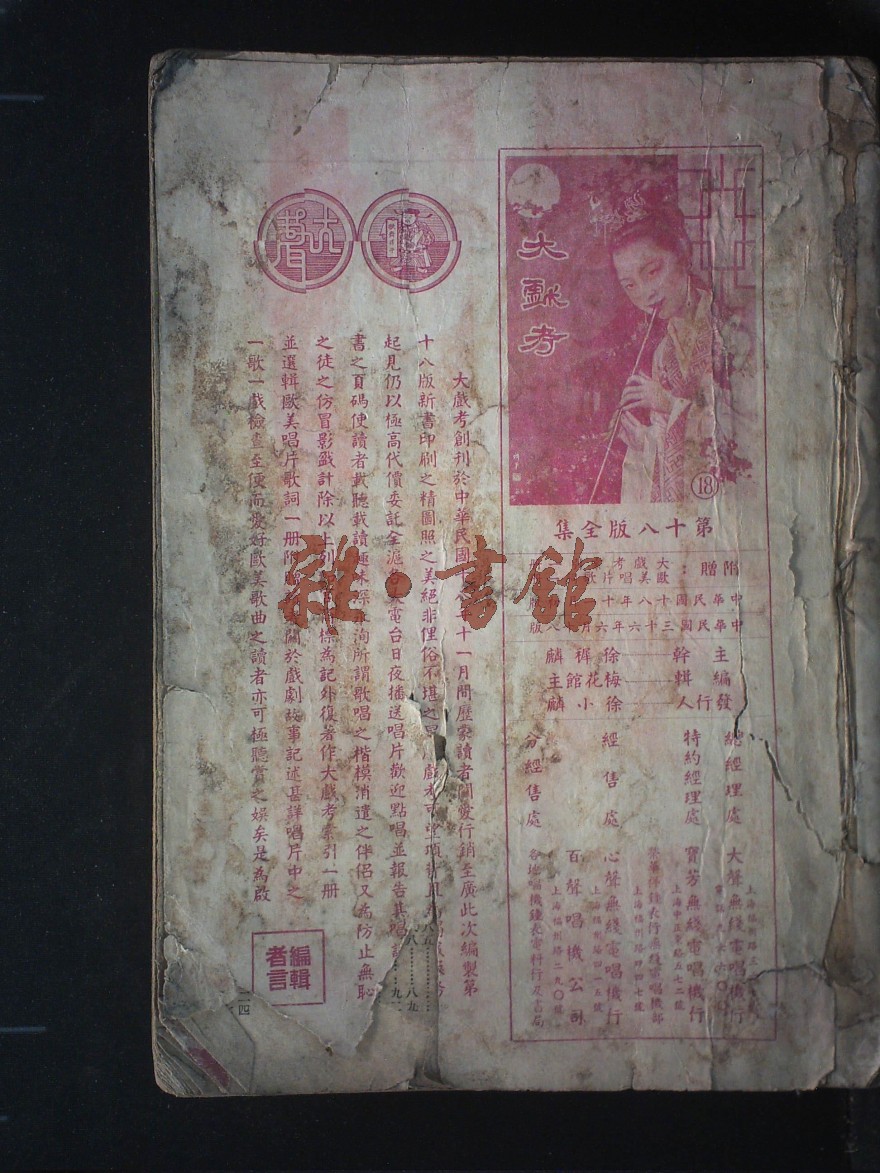 大戲考
18
第十八版全集
附贈：
大戲考
歐美唱片歌
中華民國十八年十
中華民國三十六年六月十八版
主幹——徐穉麟
編輯——梅花館主
發行人——徐小麟
總經理處
大聲無綫電唱機行
特約經理處
寶芳無綫電唱機行
上海中正東路五七二號
經售處
心聲無綫電唱機行
上海福州路四一五號
百聲唱機公司
上海福州路二九〇號
分經售處
大戲考創刊於中華民國十八年十一月間歷蒙讀者關愛行銷至廣此次編製第
十八版新書印刷之精圖照之美絕非俚俗不堪之
起見仍以極高代價委託全滬各電台日夜播送唱片歡迎點唱並報告其唱
書之頁碼使讀者載聽載讀趣味深洵所謂歌唱之楷模消遣之伴侶又為防止無恥
之徒之仿冒影戤計除以上列標為記外復著作大戲考索引一册
並選輯歐美唱片歌詞一册附關於戲劇故事記述甚詳唱片中之
一歌一戲檢查至便而愛好歐美歌曲之讀者亦可極聽賞之娛矣是為啟
編輯者言
雜·書館